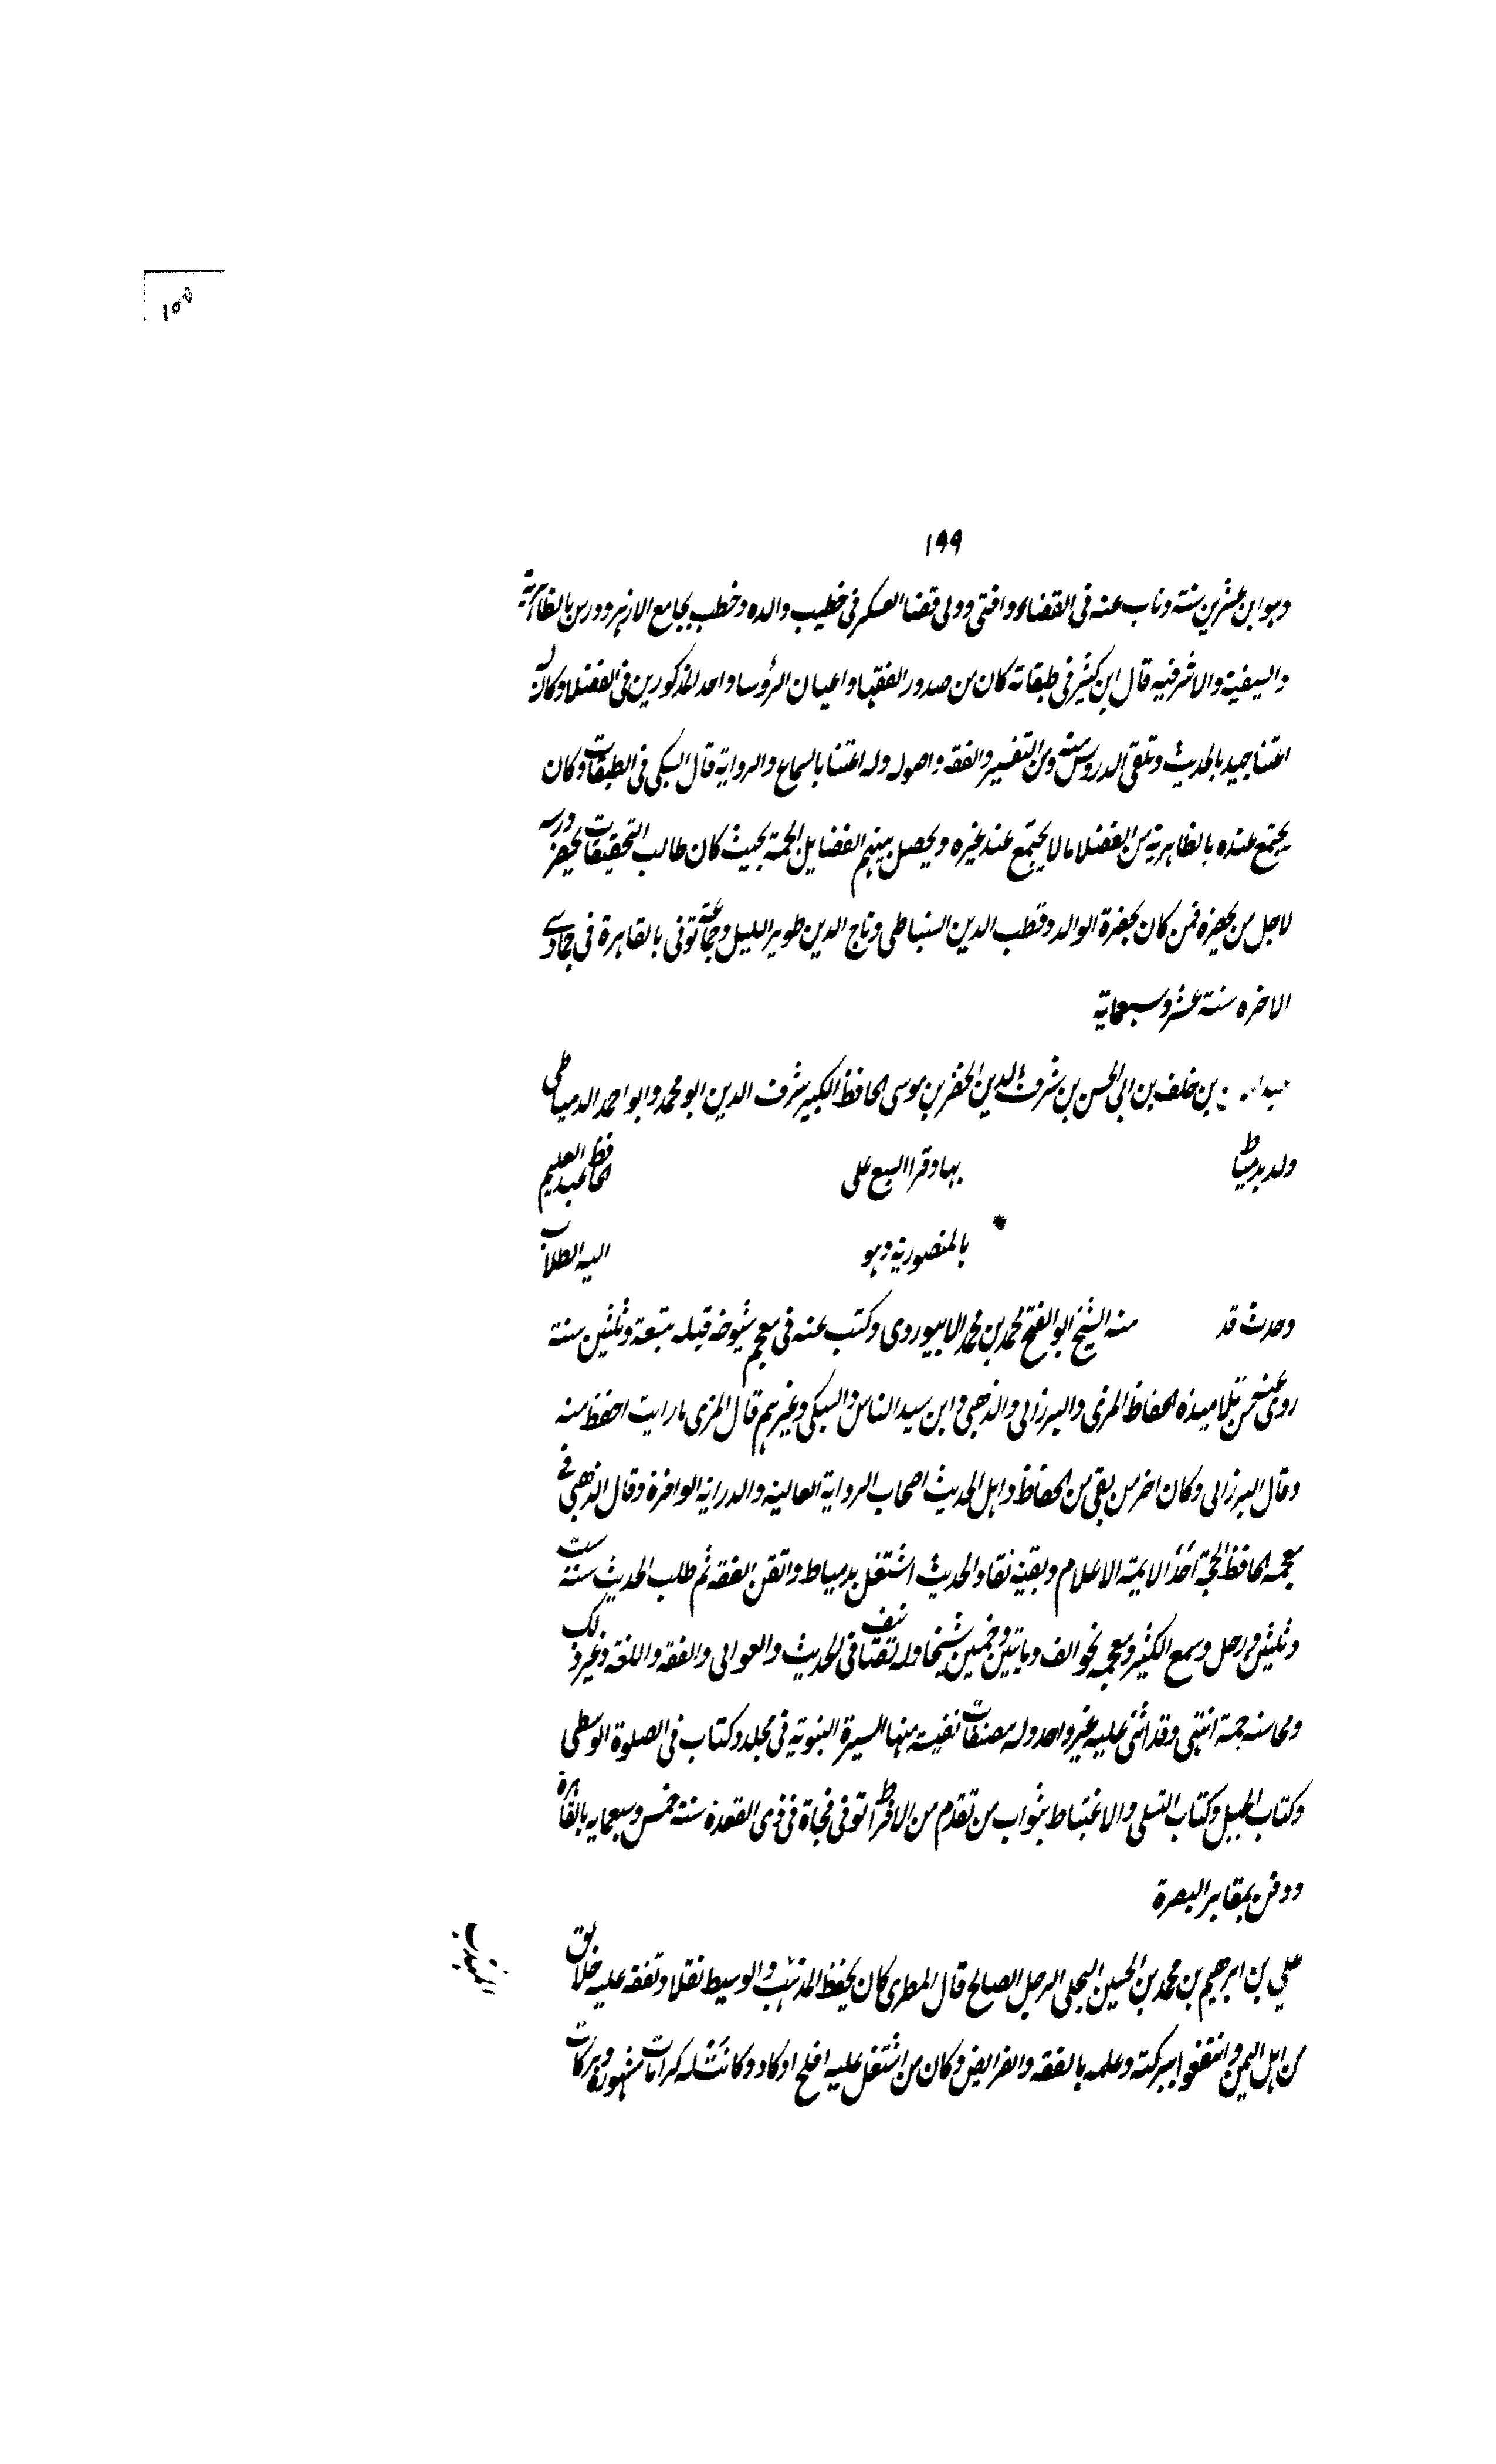 ١٥٥
١٩٩
وهو ابن عشرين سنة وناب عنه فى القضاء وافتى وولى قضا العسكر فى خطيب والده وخطب بجامع الازهر ودرس بالظاهرية
والسيفية والاشرفيه قال ابن كثير فى طبقاته كان من صدور الفقها واعيان الرؤسا واحد المذكورين فى الفضلا وكان له
اعتنا جيد بالحديث وتلقى الدروس منه ومن التفسير والفقه واصوله وله اعتنا بالسماع والرواية قال السبكى فى الطبقات وكان
يجتمع عنده بالظاهرية من الفضلا مالا يجتمع عند غيره ويحصل بينهم الفضايل الجمة بحيث كان طالب التحقيقات يحضر درسه
لاجل من يحضره فمن كان يحضره الوالد وقطب الدين السنباطى وتاج الدين طوير الليل وجماعة توفى بالقاهرة فى جمادى
الاخره سنة عشر وسبعماية
بن خلف بن ابى الحسن بن شرف الدين الخضر بن موسى الحافظ الكبير شرف الدين ابو محمد وابو احمد الدمياطى
ولد بدمياط بها وقرا السبع على الحافظ عبد العليم
بالمنصورية وهو اليه الطلاب
وحدث قد منه الشيخ ابو الفتح محمد بن محمد الابيوردى وكتب عنه فى معجم شيوخه قبله بتسعة وثلثين سنة
روى عنه من تلاميذه الحفاظ المزى والبرزالى والذهبى وابن سيد الناس والسبكى وغيرهم قال المزى ما رايت احفظ منه
وقال البرزالى وكان اخر من بقى من الحفاظ واهل الحديث اصحاب الرواية العالية والدراية الوافرة وقال الذهبى فى
معجمه الحافظ الحجة احد الايمة الاعلام وبقية نقاد الحديث اشتغل بدمياط واتقن الفقه ثم طلب الحديث سنة ست
وثلثين ورحل وسمع الكثير ومعجمه نحو الف وماتين وخمسين شيخا وله تصانيف فى الحديث والعوالى والفقه واللغة وغير ذلك
ومحاسنه جمة انتهى وقد اثنى عليه غير واحد وله مصنفات نفيسة منها السيرة النبوية فى مجلد وكتاب فى الصلوة الوسطى
وكتاب الخيل وكتاب التسلى والاغتباط بثواب من تقدم من الافراط توفى فجاة فى ذى القعدة سنة خمس وسبعمايه بالقاهرة
ودفن بمقابر البصرة
على بن ابرهيم بن محمد بن الحسين البجلى الرجل الصالح قال المطرى كان يحفظ المهذب والوسيط نقلا وتفقه عليه خلايق
من اهل اليمن وانتفعوا ببركته وعلمه بالفقه والفرايض وكان من اشتغل عليه افلح اوكاد وكانت له كرامات مشهورة وبركات